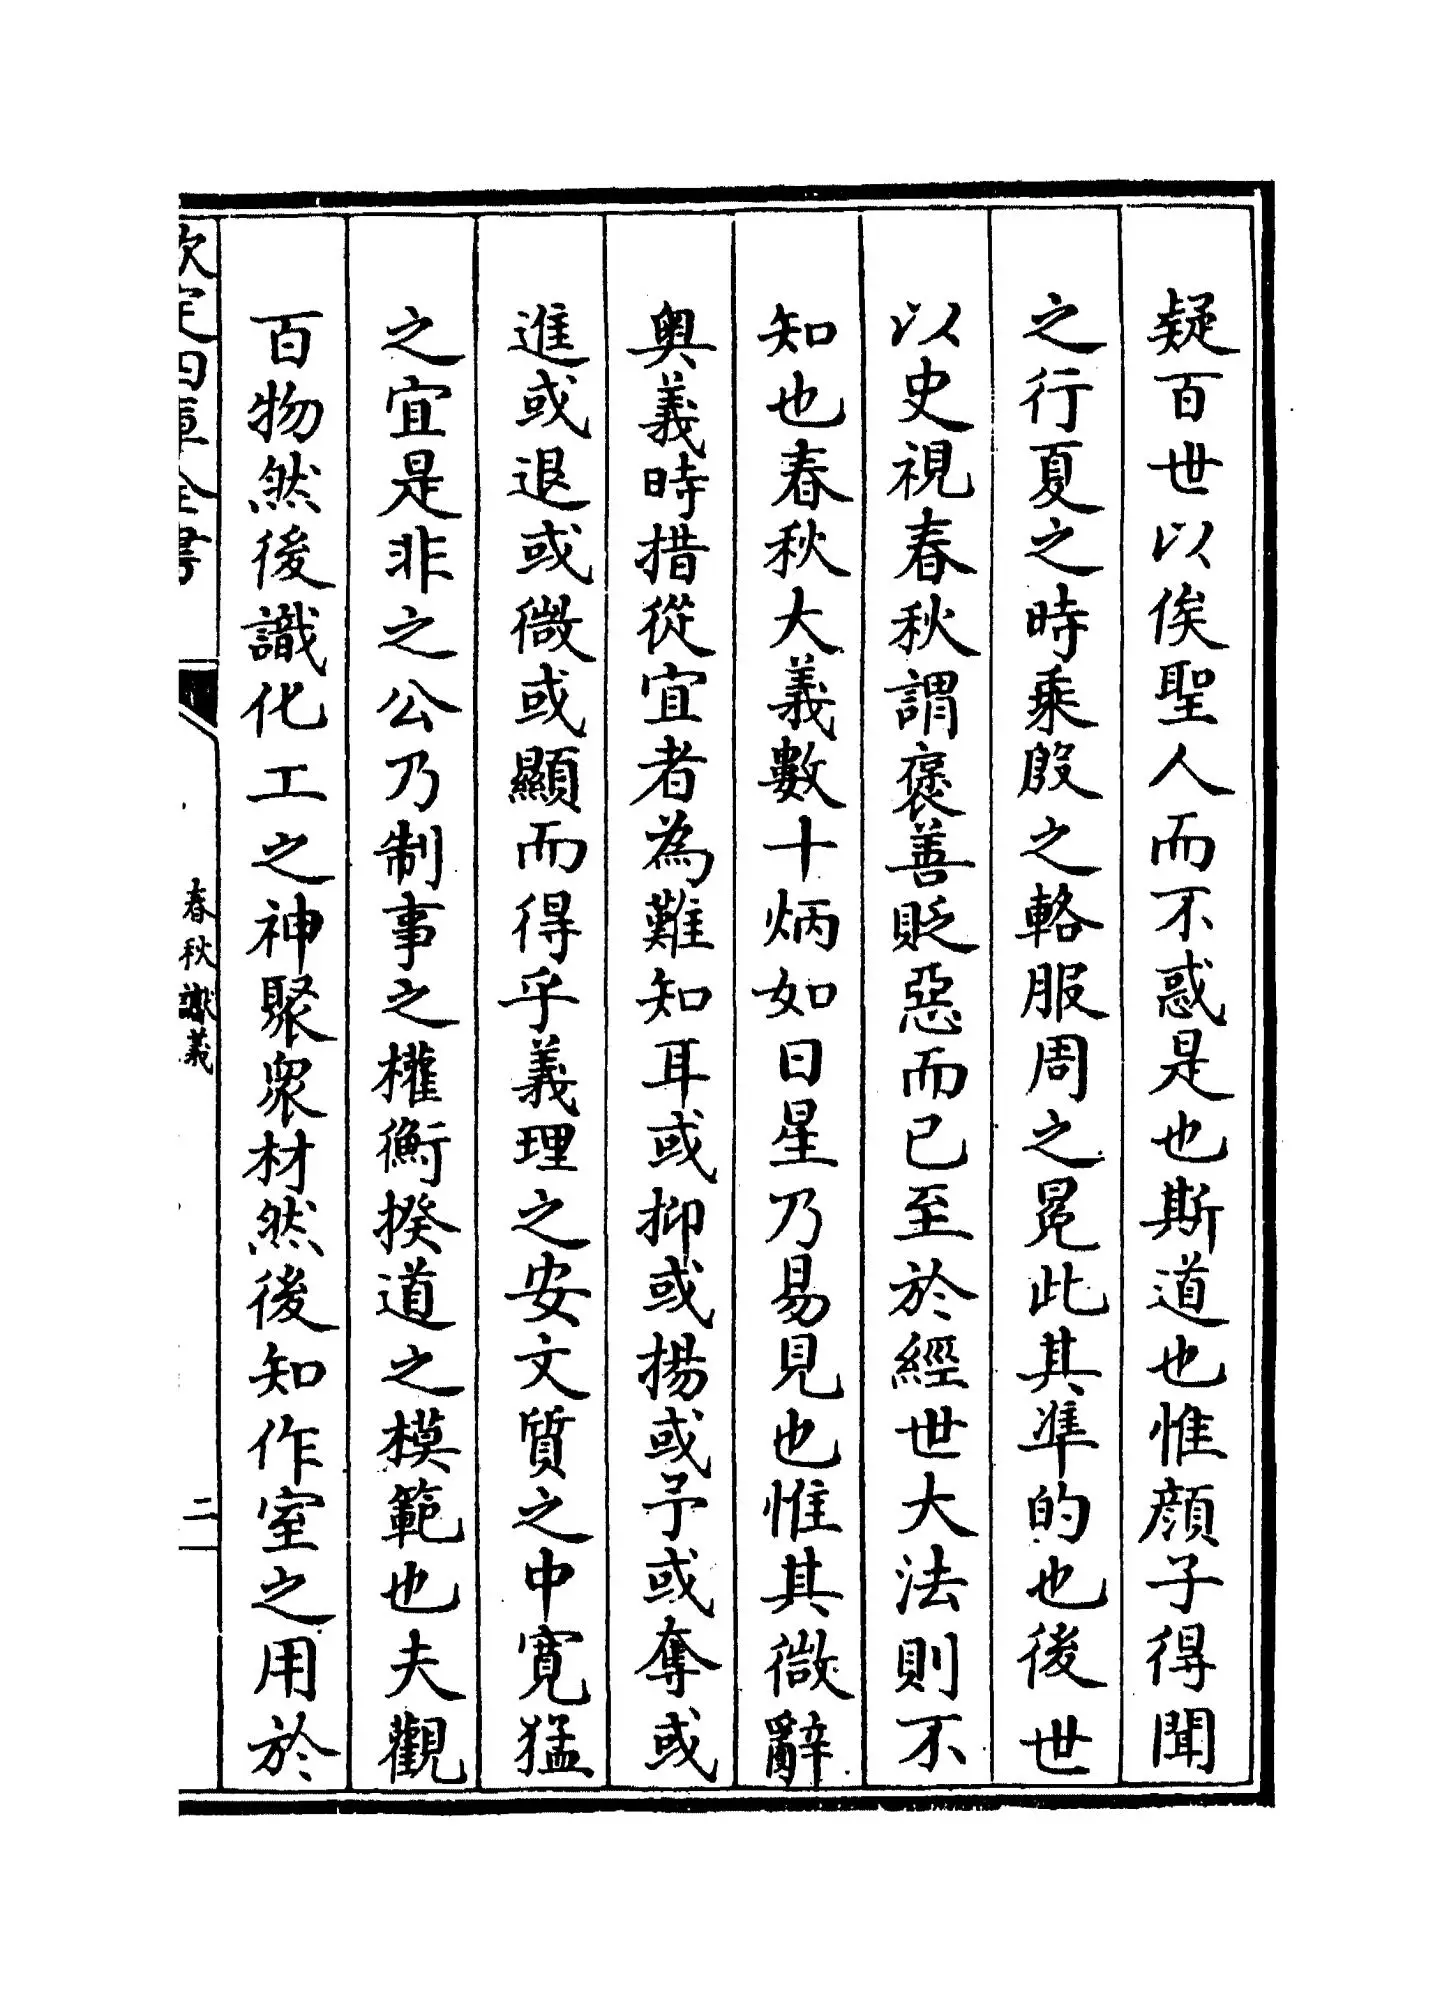 疑百世以俟聖人而不惑是也斯道也惟顔子得聞
之行夏之時乘殷之輅服周之冕此其準的也後世
以史視春秋謂褒善貶惡而已至於經世大法則不
知也春秋大義數十炳如日星乃易見也惟其微辭
奥義時措從宜者為難知耳或抑或揚或予或奪或
進或退或微或顯而得乎義理之安文質之中寛猛
之宜是非之公乃制事之權衡揆道之模範也夫觀
百物然後識化工之神聚衆材然後知作室之用於
欽定四庫全書
春秋讞義
二